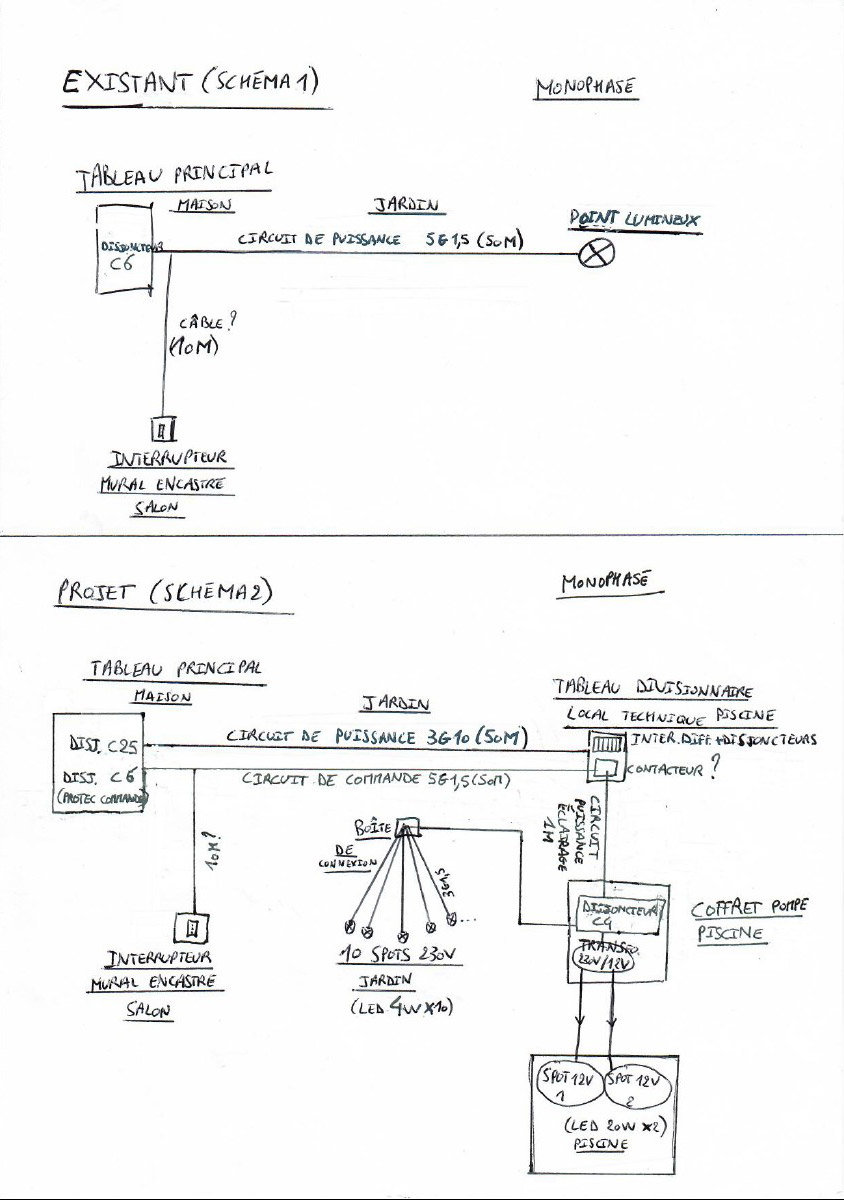 EXISTANT (SCHÉMA 1)
MONOPHASÉ
TABLEAU PRINCIPAL
MAISON
JARDIN
POINT LUMINEUX
DISJONCTEUR
C6
CIRCUIT DE PUISSANCE 5G1,5 (50M)
CÂBLE?
(10M)
INTERRUPTEUR
MURAL ENCASTRÉ
SALON
PROJET (SCHÉMA 2)
MONOPHASÉ
TABLEAU PRINCIPAL
MAISON
JARDIN
TABLEAU DIVISIONNAIRE
LOCAL TECHNIQUE PISCINE
DISJ. C25
CIRCUIT DE PUISSANCE 3G10 (50M)
INTER.DIFF.+DISJONCTEURS
DISJ. C6
(PROTEC COMMANDE)
CIRCUIT DE COMMANDE 5G1,5 (50M)
CONTACTEUR?
10M?
BOÎTE
DE
CONNEXION
3G1,5
CIRCUIT
PUISSANCE
ÉCLAIRAGE
1M
...
DISJONCTEUR
C4
COFFRET POMPE
PISCINE
TRANSFO
230V/12V
INTERRUPTEUR
MURAL ENCASTRÉ
SALON
10 SPOTS 230V
JARDIN
(LED 4W X10)
SPOT 12V
1
SPOT 12V
2
(LED 20W X2)
PISCINE